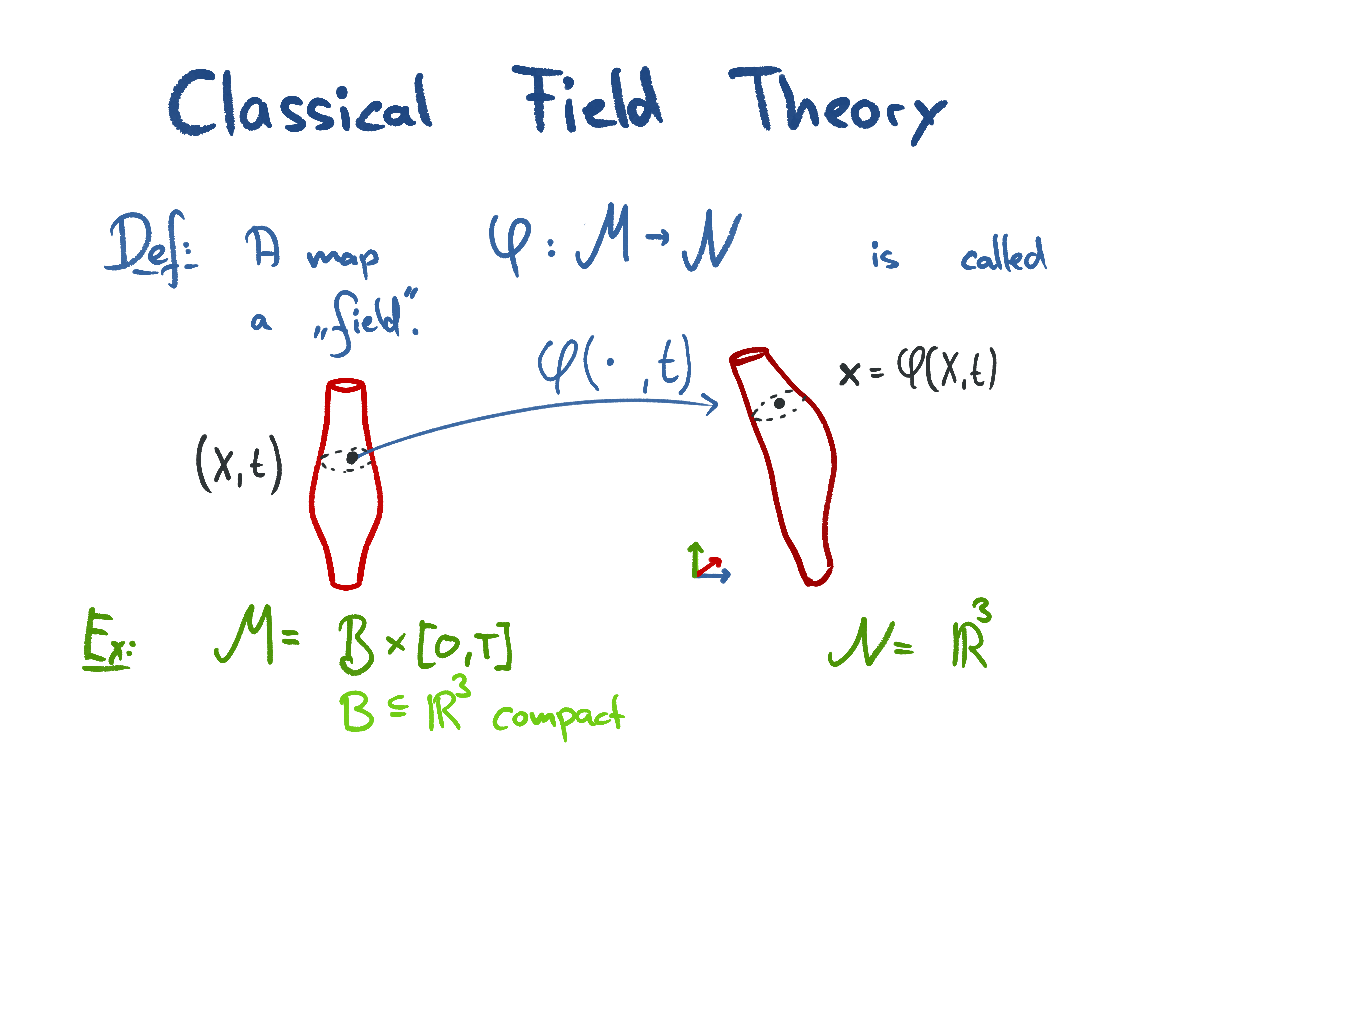 Classical Field Theory
Def: A map φ : M → N is called
a „field".
φ(· , t)
x = φ(X,t)
(X,t)
Ex: M = B × [0,T] N = ℝ³
B ⊆ ℝ³ compact